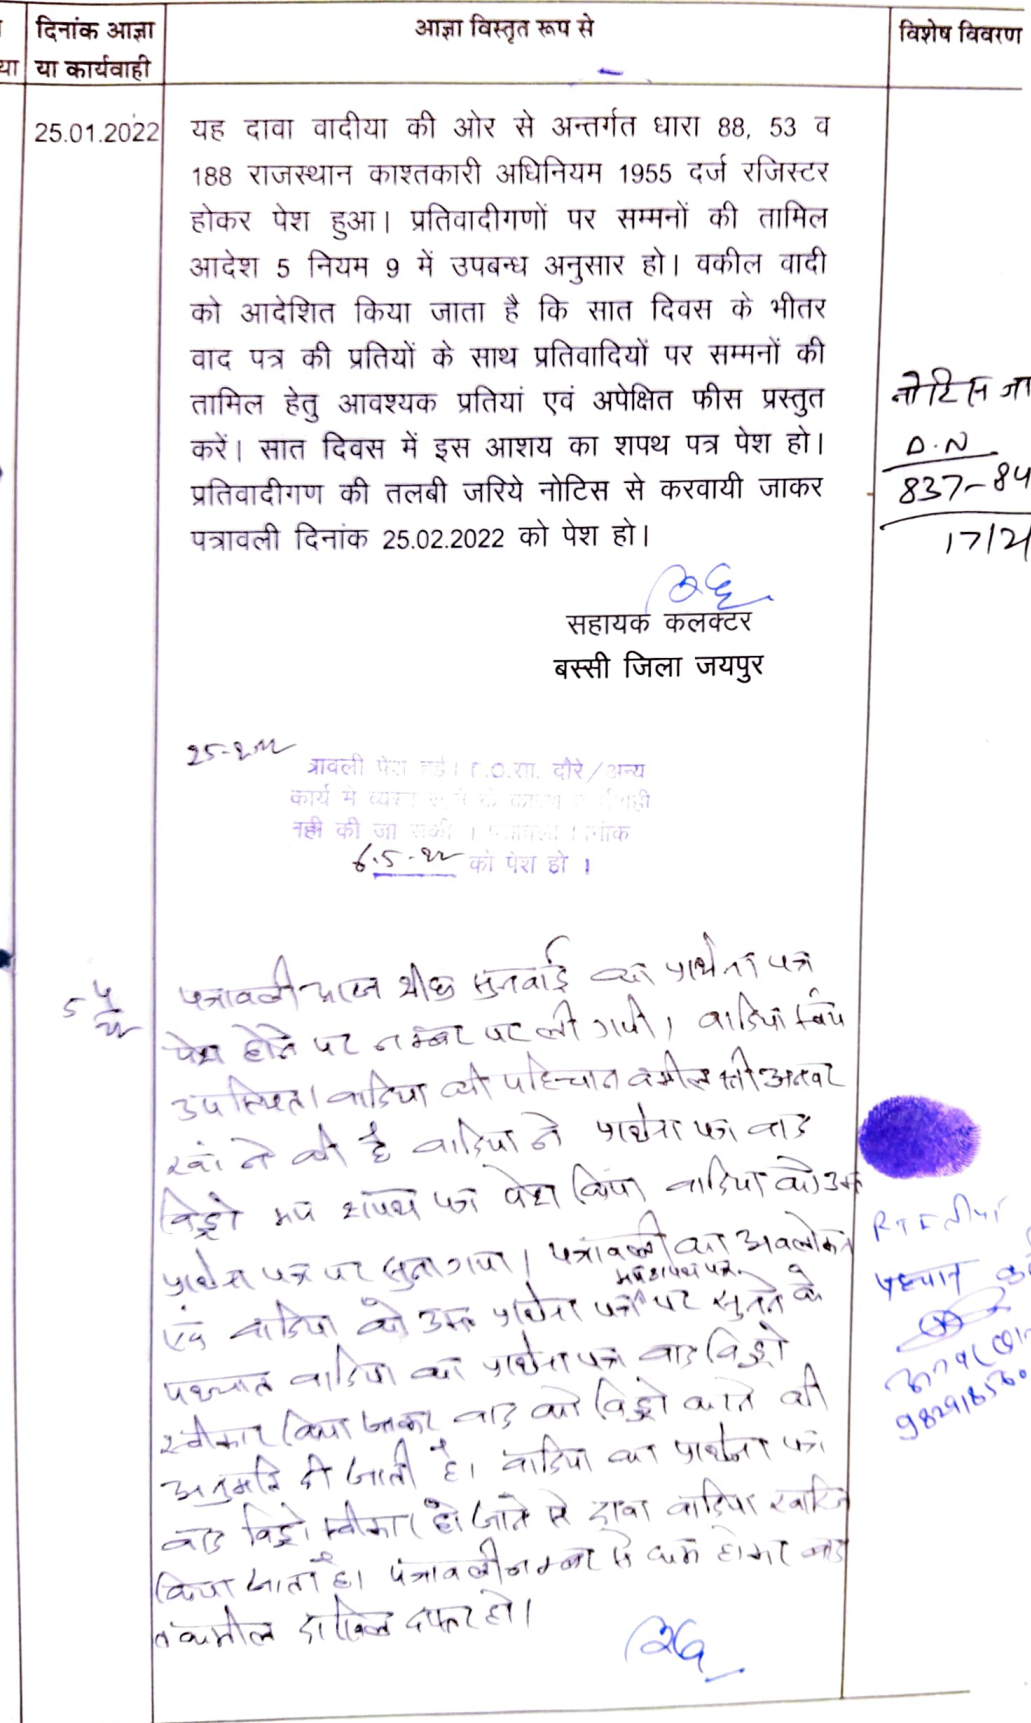 दिनांक आज्ञा
या कार्यवाही
आज्ञा विस्तृत रूप से
विशेष विवरण
या
25.01.2022
यह दावा वादीया की ओर से अन्तर्गत धारा 88, 53 व
188 राजस्थान काश्तकारी अधिनियम 1955 दर्ज रजिस्टर
होकर पेश हुआ। प्रतिवादीगणों पर सम्मनों की तामिल
आदेश 5 नियम 9 में उपबन्ध अनुसार हो। वकील वादी
को आदेशित किया जाता है कि सात दिवस के भीतर
वाद पत्र की प्रतियों के साथ प्रतिवादियों पर सम्मनों की
तामिल हेतु आवश्यक प्रतियां एवं अपेक्षित फीस प्रस्तुत
करें। सात दिवस में इस आशय का शपथ पत्र पेश हो।
प्रतिवादीगण की तलबी जरिये नोटिस से करवायी जाकर
पत्रावली दिनांक 25.02.2022 को पेश हो।
नोटिस जा
D.N
837-84
17/2
सहायक कलक्टर
बस्सी जिला जयपुर
25-2-22
त्रावली पेश हुई। .O.सा. दौरे/अन्य
कार्य मे व्यस्त के कारण
नही की जा सकी ।
6.5.22 को पेश हो ।
5
4
22
पत्रावली आज शीघ्र सुनवाई का प्रार्थना पत्र
पेश होने पर नम्बर पर ली गयी। वादिया स्वयं
उपस्थित। वादिया की पहिचान वकील श्री अनवर
खां ने की है वादिया ने प्रार्थना पत्र वाद
विड्रो मय शपथ पत्र पेश किया वादिया को उक्त
प्रार्थना पत्र पर सुना गया। पत्रावली का अवलोकन
मय शपथ पत्र
एवं वादिया को उक्त प्रार्थना पत्र पर सुनने के
पश्चात वादिया का प्रार्थना पत्र वाद विड्रो
स्वीकार किया जाकर वाद को विड्रो करने की
अनुमति दी जाती है। वादिया का प्रार्थना पत्र
वाद विड्रो स्वीकार हो जाने से दावा वादिया खारिज
किया जाता है। पत्रावली नम्बर से कम होकर बाद
तकमील दाखिल दफ्तर हो।
RTI
पहचान
अनवर खान